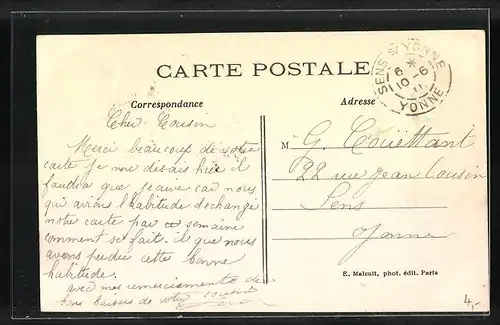 CARTE POSTALE
SENS S/ YONNE
6 *
10 - 6
11
YONNE
Correspondance
Adresse
Cher Cousin
Merci beaucoup de votre
carte je me disais hier il
faudra que j'ecrive car nous
qui avion l'habitude d'echange
notre carte par semaine
comment se fait. il que nous
avons perdue cette bonne
habitude.
avec mes remerciements de
bons baisers de votre cousin
M G. Couëttant
22 rue Jean Cousin
Sens
Yonne
E. Malcuit, phot. édit. Paris
4,-